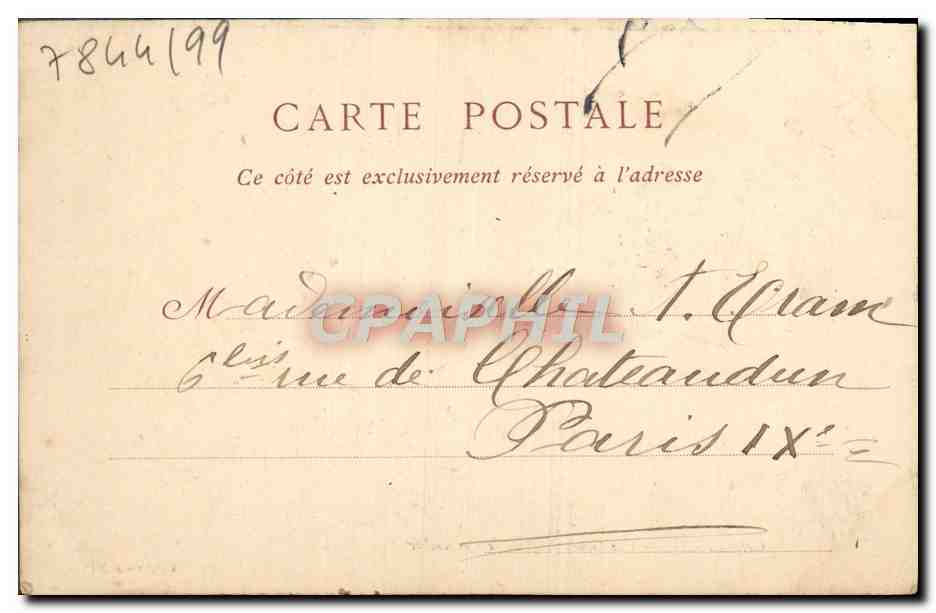 7844/99
CARTE POSTALE
Ce côté est exclusivement réservé à l'adresse
Mademoiselle A.
CPAPHIL
6 bis rue de Chateaudun
Paris IXe